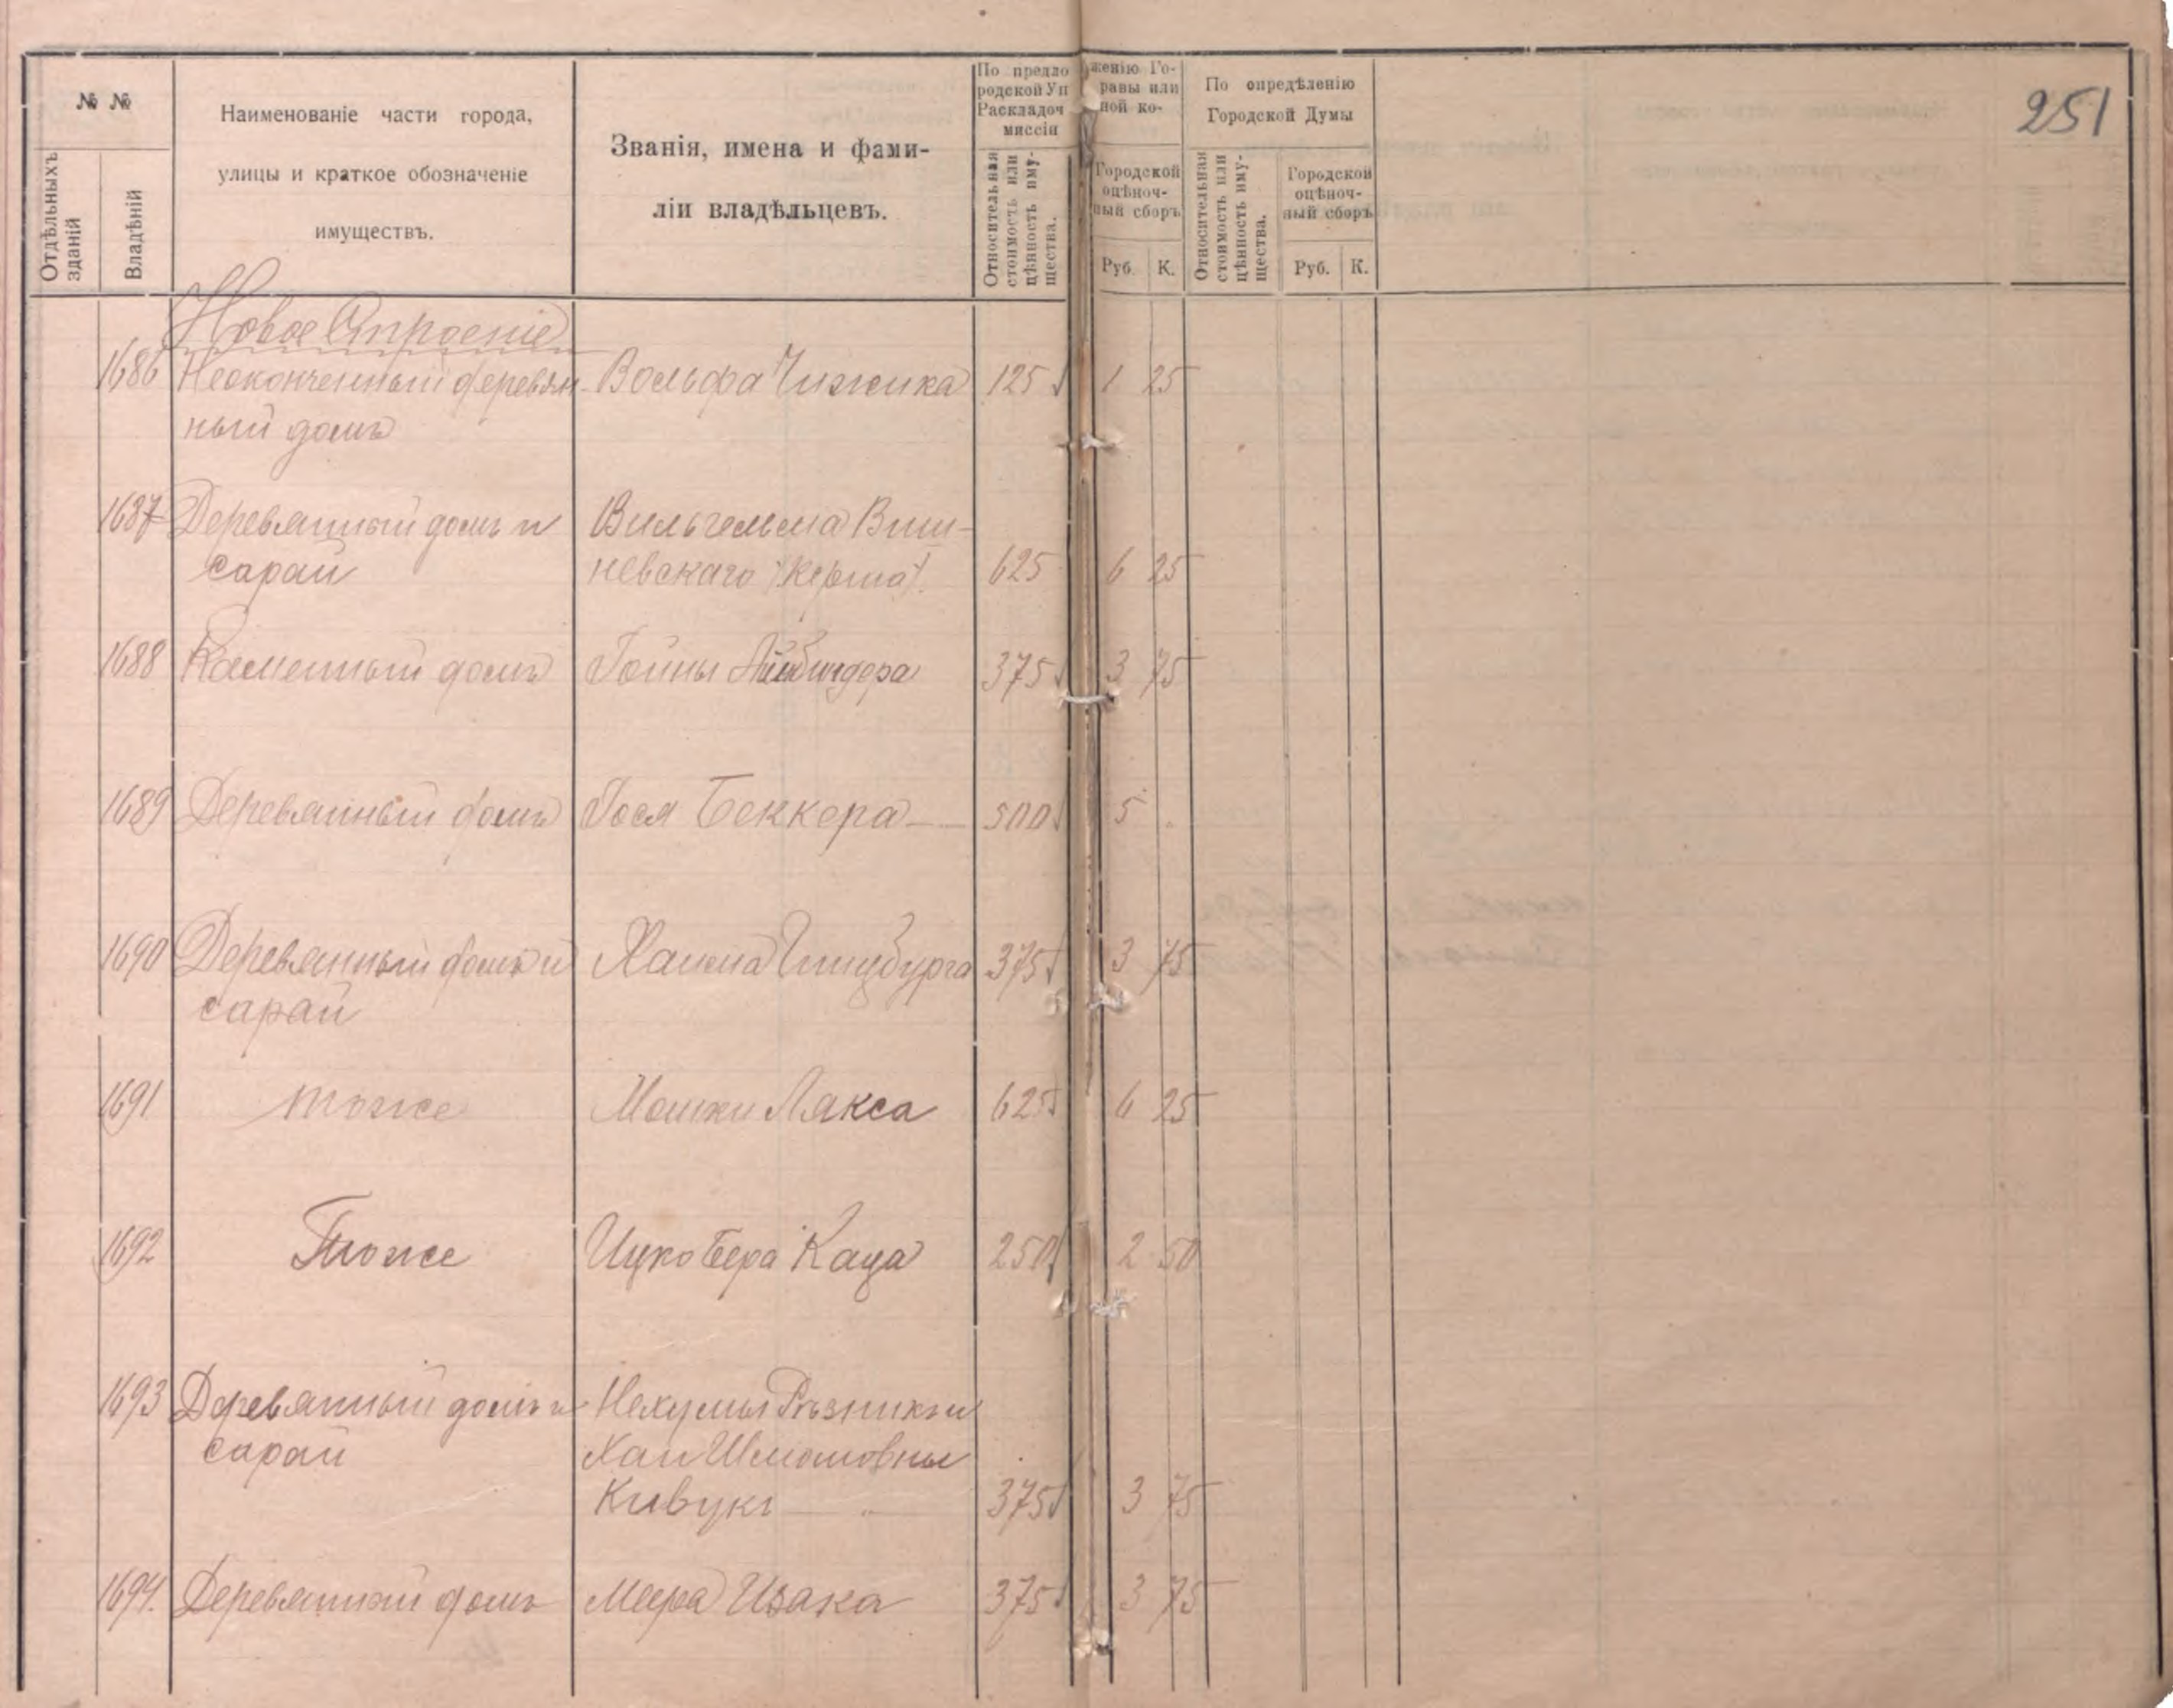 251
№ №
Отдѣльныхъ зданій
Владѣній
Наименованіе части города,
улицы и краткое обозначеніе
имуществъ.
Званія, имена и фами-
ліи владѣльцевъ.
По предло женію Го-
родской Уп равы или
Раскладоч ной ко-
миссіи
Относительная
стоимость или
цѣнность иму-
щества.
Городской
оцѣноч-
ный сборъ
Руб. К.
По опредѣленію
Городской Думы
Относительная
стоимость или
цѣнность иму-
щества.
Городской
оцѣноч-
ный сборъ
Руб. К.
Новое Строеніе
1686 Неоконченный деревян- Вольфа Чижика 125 1 25
ный домъ
1687 Деревянный домъ и Вильгельма Виш-
сарай невскаго 625 6 25
1688 Каменный домъ Гойны Айнбиндера 375 3 75
1689 Деревянный домъ Госа Беккера 500 5
1690 Деревянный домъ и Хаима Гинцбурга 375 3 75
сарай
1691 тоже Мошки Лакса 625 6 25
1692 Тоже Ицко Бера Каца 250 2 50
1693 Деревянный домъ и Нехумы Рѣзникъ и
сарай Хаи Шломовны
Кивукъ 375 3 75
1694. Деревянный домъ Меера Изака 375 3 75